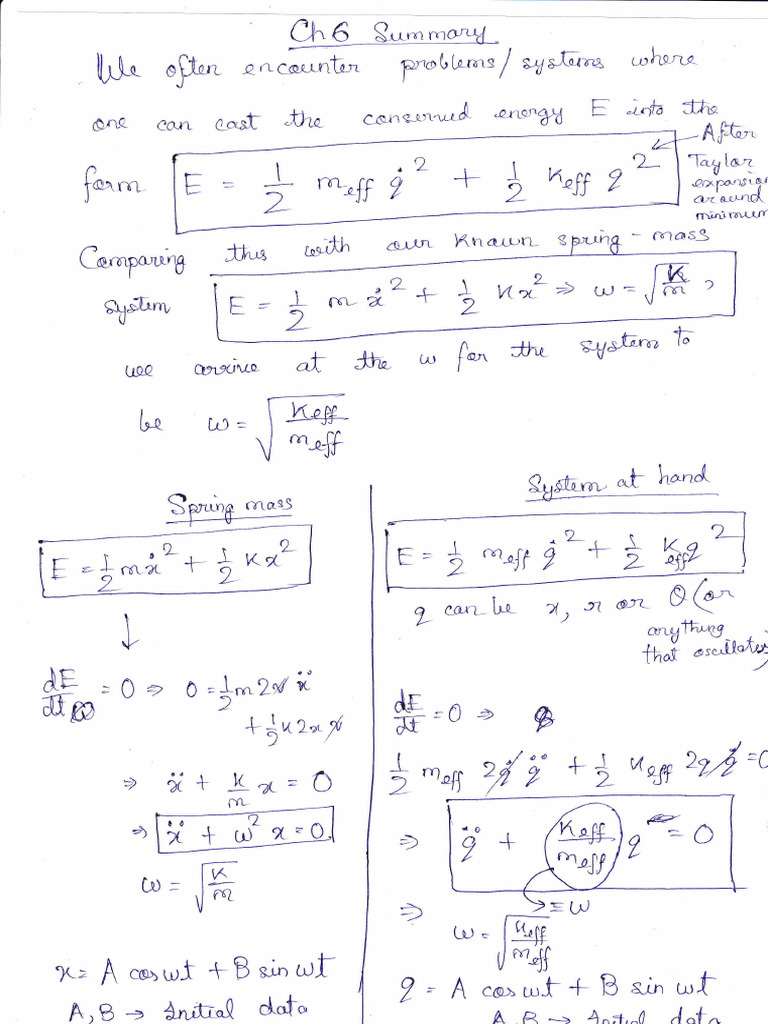 Ch 6 Summary
We often encounter problems/systems where
one can cast the conserved energy E into the
form E = 1/2 m_eff q̇² + 1/2 k_eff q²
← After
Taylor
expansion
around
minimum
Comparing this with our known spring-mass
system E = 1/2 m ẋ² + 1/2 kx² ⇒ ω = √(k/m) ,
we arrive at the ω for the system to
be ω = √(k_eff/m_eff)
Spring mass
E = 1/2 mẋ² + 1/2 kx²
↓
dE/dt = 0 ⇒ 0 = 1/2 m 2ẋ ẍ
+ 1/2 k 2x ẋ
⇒ ẍ + k/m x = 0
⇒ ẍ + ω² x = 0.
ω = √(k/m)
x = A cos ωt + B sin ωt
A, B → Initial data
System at hand
E = 1/2 m_eff q̇² + 1/2 k_eff q²
q can be x, r or θ (or
anything
that oscillates)
dE/dt = 0 ⇒
1/2 m_eff 2q̇ q̈ + 1/2 k_eff 2q q̇ = 0
⇒ q̈ + k_eff/m_eff q = 0
→ ≡ ω
⇒ ω = √(k_eff/m_eff)
q = A cos ωt + B sin ωt
A, B → Initial data